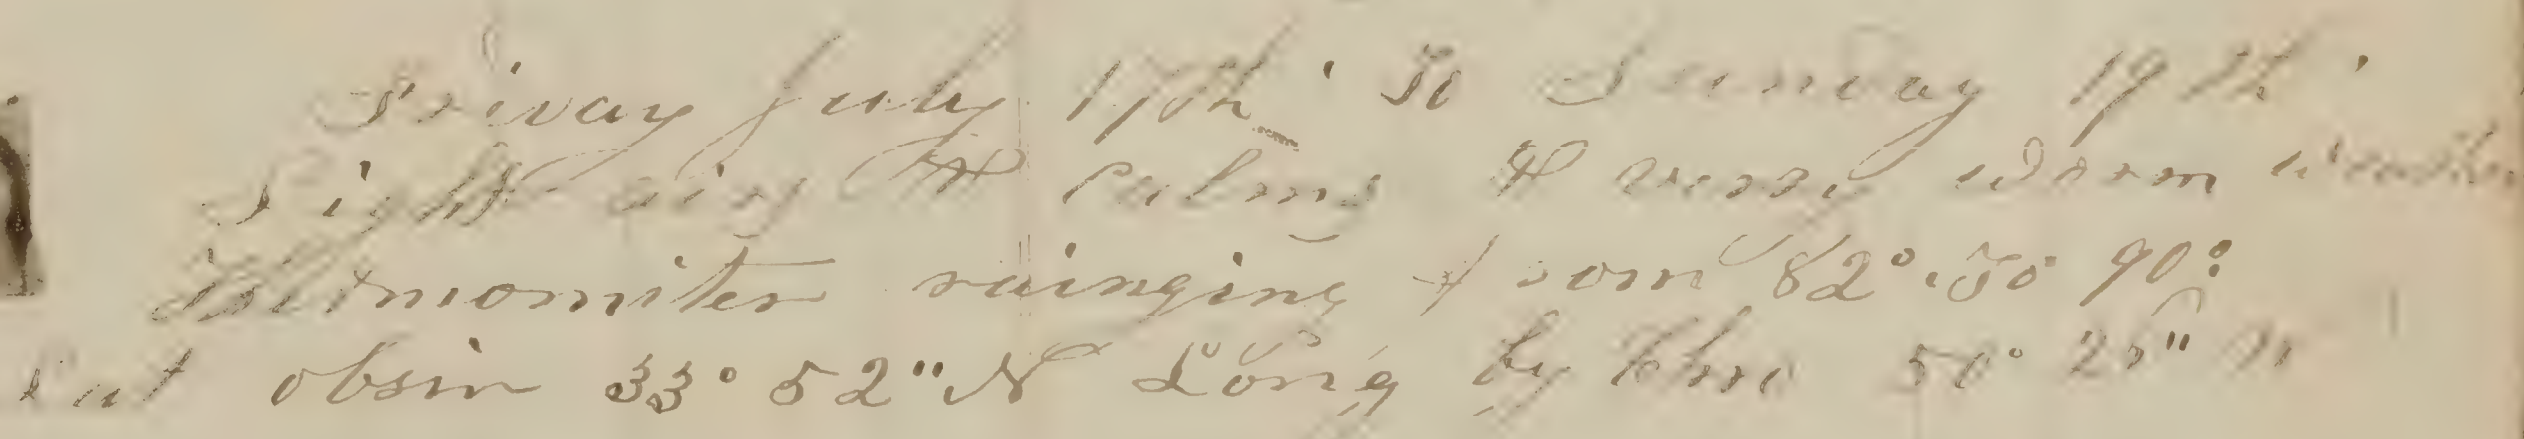 Friday July 17th to Sunday 19th
Light airs & calms & very warm weather
thermomiter rainging from 82° to 90°
Lat obsin 33° 52" N Long by Chro 50° 25" W